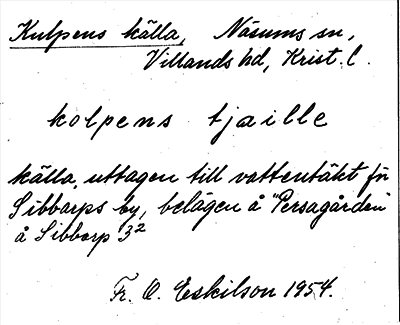 Kulpens källa, Näsums sn,
Villands hd, Krist. l.
kolpens tjaille
källa, uttagen till vattentäkt för
Sibbarps by, belägen å "Persagården"
å Sibbarp 3²
Fr. O. Eskilson 1954.